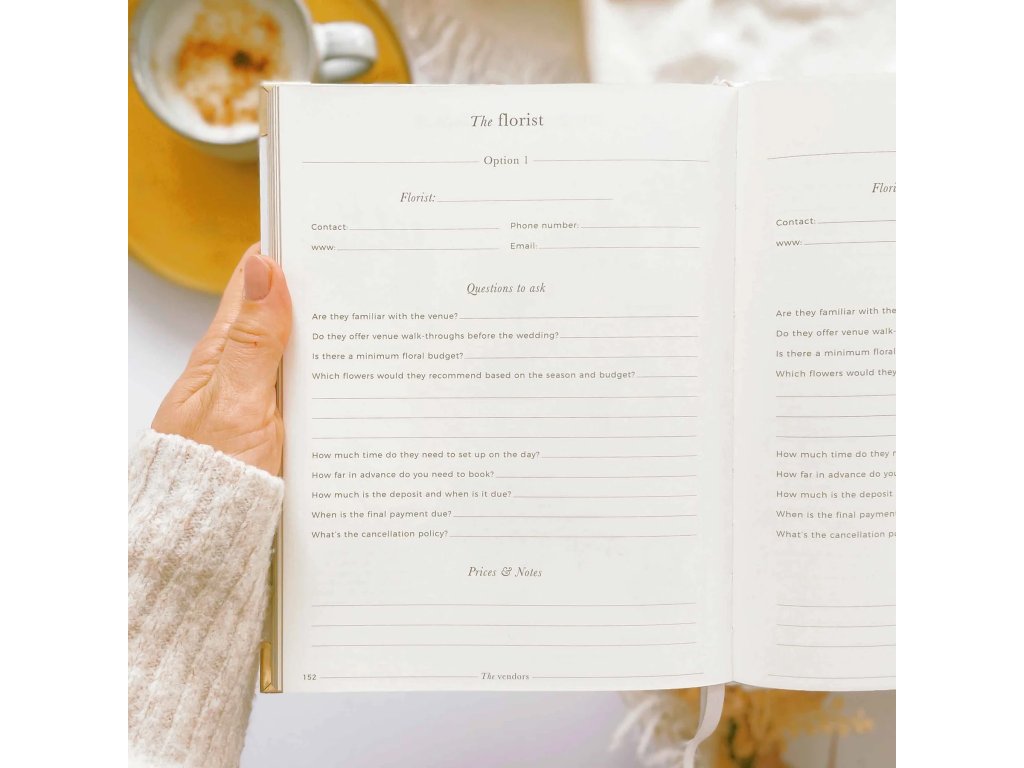 The florist
Option 1
Florist:
Contact: Phone number:
www: Email:
Questions to ask
Are they familiar with the venue?
Do they offer venue walk-throughs before the wedding?
Is there a minimum floral budget?
Which flowers would they recommend based on the season and budget?
How much time do they need to set up on the day?
How far in advance do you need to book?
How much is the deposit and when is it due?
When is the final payment due?
What's the cancellation policy?
Prices & Notes
152 The vendors
Flori
Contact:
www:
Are they familiar with the
Do they offer venue walk-
Is there a minimum floral
Which flowers would they
How much time do they n
How far in advance do you
How much is the deposit
When is the final payment
What's the cancellation p